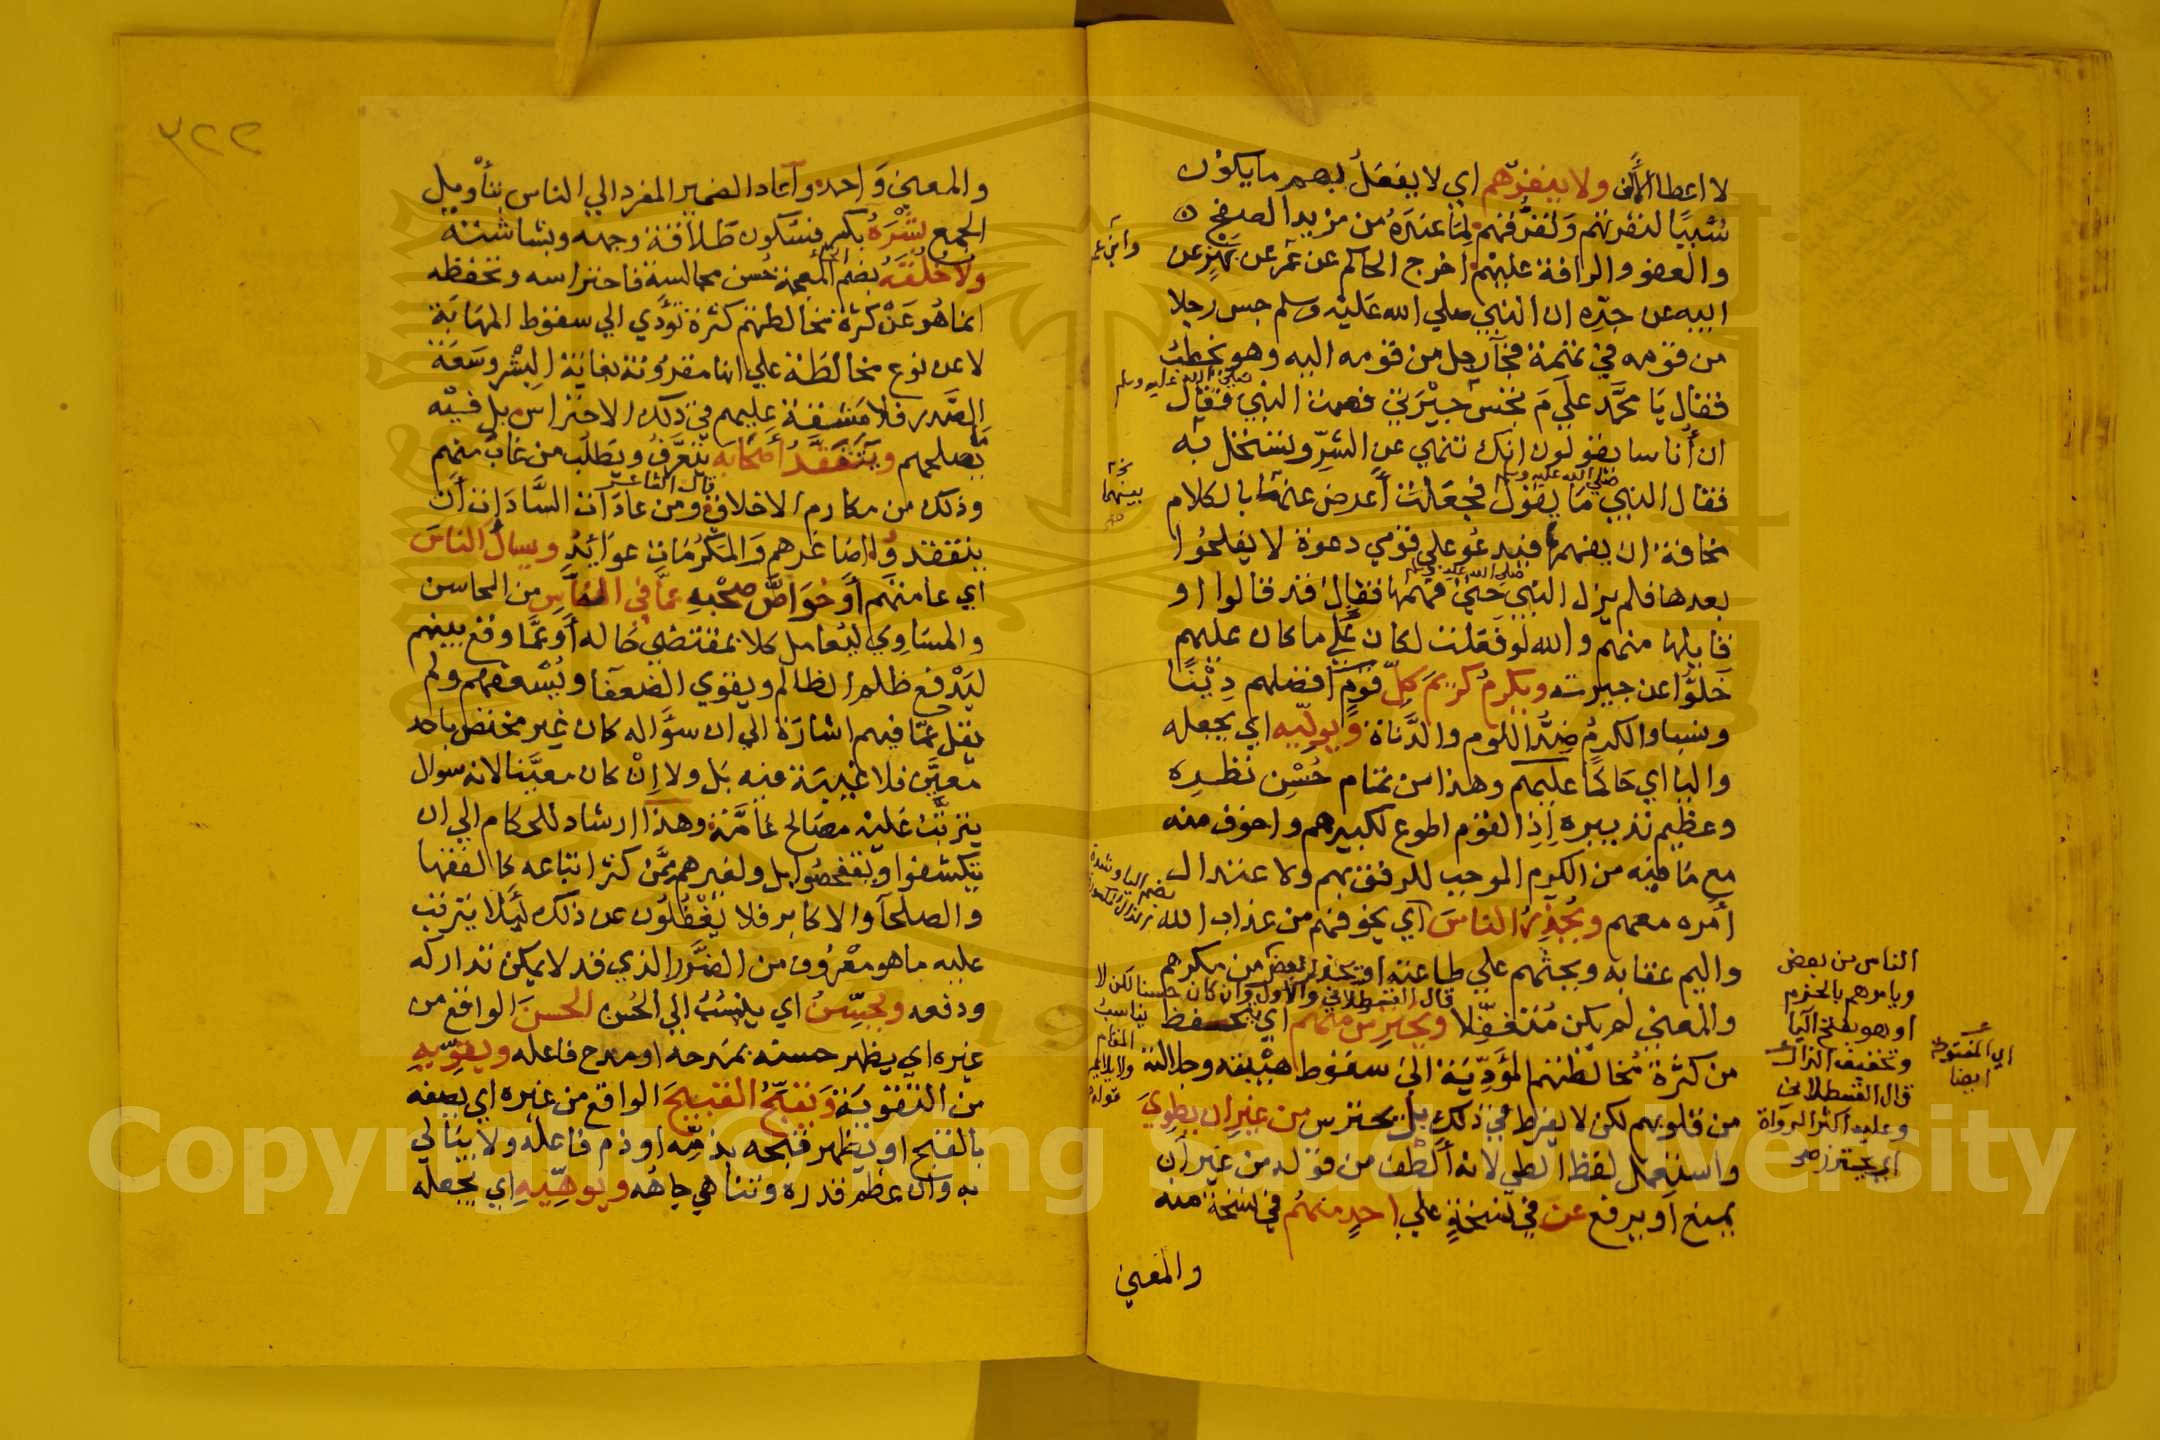 لا اعطا الألف ولا ينفرهم اي لا يفعل بهم ما يكون
سببا لنفرتهم وتفرقهم لما عنده من مزيد الصفح
والعفو والرافة عليهم اخرج الحاكم عن عن بهز عن
ابيه عن جده ان النبي صلي الله عليه وسلم حبس رجلا
من قومه في تهمة فجآ رجل من قومه اليه وهو يخطب
فقال يا محمد علي م تحبس جيرتي فصمت النبي صلي الله عليه وسلم فقال
ان أناسا يقولون انك تنهي عن الشر وتستخل به
فقال النبي صلي الله عليه وسلم ما يقول فجعلت أعرض بالكلام
مخافة ان يفهمها فيدعو علي قومي دعوة لا يفلحوا
بعدها فلم يزل النبي صلي الله عليه وسلم حتي فهمها فقال قد قالوا او
قايلها منهم والله لو فعلت لكان علي ما كان عليهم
خلوا عن جيرته ويكرم كريم كل قوم افضلهم دينا
ونسبا والكرم ضد اللوم والدناة ويوليه اي يجعله
واليا اي حاكما عليهم وهذا من تمام حسن نظره
وعظيم تدبيره إذ القوم اطوع لكبيرهم واخوف منه
مع ما فيه من الكرم الموجب للرفق بهم ولاعتدال
أمره معهم ويحذر الناس اي يخوفهم من عذاب الله
واليم عقابه ويحثهم علي طاعته او يحذر بعض من مكرهم
والمعني لم يكن متغفلا ويحترس منهم اي يتحفظ
من كثرة مخالطتهم المؤدية الي سقوط هيبته وجلالته
من قلوبهم لكن لا يفرط في ذلك بل يحترس من غير ان يطوي
واستعمل لفظ الطي لانه ألطف من قوله من غير ان
يمنع او يرفع عن في نسخة علي احد منهم في نسخة منه
والمعني
بضم اليا وشدة
قال القسطلاني والاول وان كان حسنا لكن لا
يناسب
المقام
الناس من بعض
ويامرهم بالحزم
او هو بفتح اليا
وتخفيف الذال
قال القسطلاني
وعليه اكثر الرواة
اي يحترز صح
اي المفتوحة
ايضا
٣٢٢
والمعني واحد وأعاد الضمير المفرد الي الناس بتأويل
الجمع بشره بكسر فسكون طلاقة وجهه وبشاشته
ولا خلقه بضم المعجمة حسن مجالسة فاحتراسه وتحفظه
انما هو عن كثرة مخالطتهم كثرة تؤدي الي سقوط المهابة
لا عن نوع مخالطة علي انها مقرونة بغاية البشر وسعة
الصدر فلا مشقة عليهم في ذلك الاحتراس بل فيه
يصلحهم ويتفقد أصحابه يتعرف ويطلب من غاب منهم
وذلك من مكارم الاخلاق قال الشاعر ومن عادات السادات أن
يتفقدوا اصاغرهم والمكرمات عوايد ويسأل الناس
اي عامتهم أو خواص صحبه عما في الناس من المحاسن
والمساوي ليعامل كلا بمقتضي حاله أو عما وقع بينهم
ليدفع ظلم الظالم ويقوي الضعفا ويسعفهم ولم
يقل عما فيهم اشارة الي ان سؤاله كان غير مختص باحد
معين فلا غيبة فيه بل ولا إن كان معينا لانه سوال
يترتب عليه مصالح عامة وهذا ارشاد للحكام الي ان
يتكشفوا ويتفحصوا بل ولغيرهم ممن كثر اتباعه كالفقها
والصلحآ والاكابر فلا يغفلون عن ذلك ليلا يترتب
عليه ما هو معروف من الضرر الذي قد لا يمكن تداركه
ودفعه ويحسن اي ينسب الي الحسن الحسن الواقع من
غيره اي يظهر حسنه بمدحه او مدح فاعله ويقويه
من التقوية ويقبح القبيح الواقع من غيره اي يصفه
بالقبح او يظهر قبحه بذمه او ذم فاعله ولا يبالي
به وان عظم قدره وتناهي جاهه ويوهيه اي يجعله